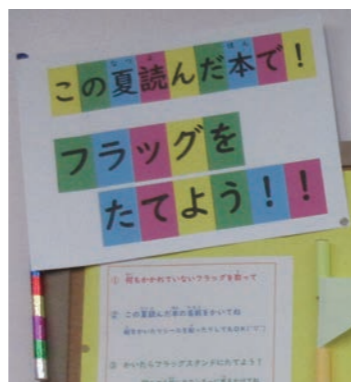 この夏読んだ本で！
フラッグを
たてよう！！
① 何もかかれていないフラッグを取って
② この夏読んだ本の名前をかいてね
③ かいたらフラッグスタンドにたてよう！